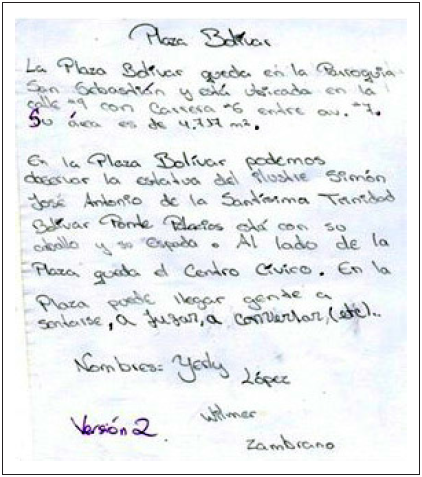 Plaza Bolívar
La Plaza Bolívar queda en la Parroquia
San Sebastián y está ubicada en la
calle #9 con Carrera #6 entre av. #7.
Su área es de 4.737 m².
En la Plaza Bolívar podemos
observar la estatua del ilustre Simón
José Antonio de la Santísima Trinidad
Bolívar Ponte Palacios está con su
caballo y su Espada. Al lado de la
Plaza queda el Centro Cívico. En la
Plaza puede llegar gente a
sentarse, a jugar, a conversar, (etc)..
Nombres: Yesly
López
Wilmer
Zambrano
Versión 2.